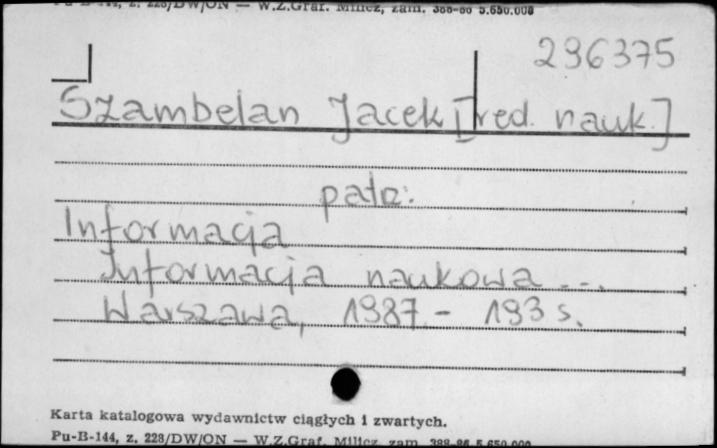 Pu-B-144, z. 228/DW/ON — W.Z.Graf. Milicz, zam. 388-86 5.650.000
296375
Szambelan Jacek [red. nauk.]
patz:
Informacja
Informacja naukowa ...
Warszawa, 1987. - 193 s.
Karta katalogowa wydawnictw ciągłych i zwartych.
Pu-B-144, z. 228/DW/ON — W.Z.Graf. Milicz, zam. 388-86 5.650.000